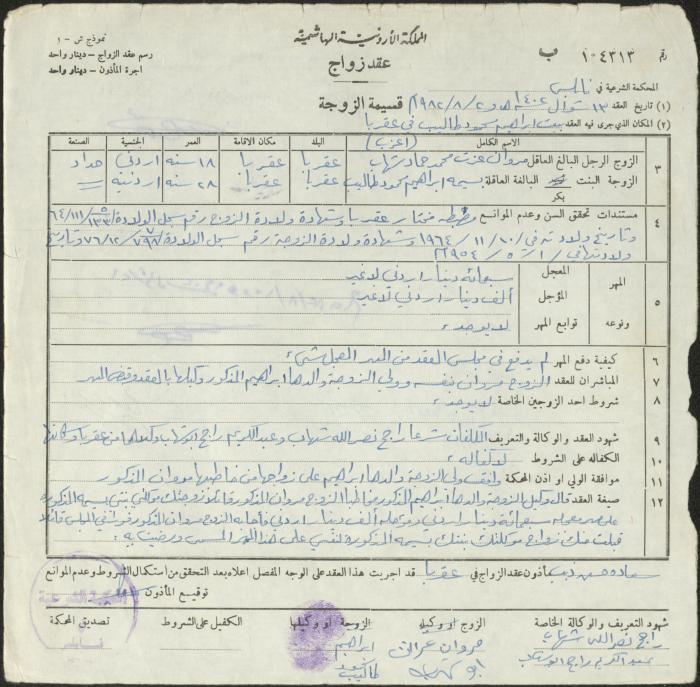 المملكة الأردنية الهاشمية
نموذج ش - ١
رقم ١٠٤٣١٣ ب
عقد زواج
رسم عقد الزواج - دينار واحد
اجرة المأذون - دينار واحد
المحكمة الشرعية في نابلس
(١) تاريخ العقد ١٣ شوال سنة ١٤٠٢ هـ و ٢/٨/١٩٨٢ م قسيمة الزوجة
(٢) المكان الذي جرى فيه العقد بيت ابراهيم محمود طاليب في عقربا
الاسم الكامل (اعزب) البلد مكان الاقامة العمر الجنسية الصنعة
٣ الزوج الرجل البالغ العاقل مروان عزت محمد عقربا عقربا ١٨ سنه اردني حداد
الزوجة البنت البالغة العاقلة بسيمه ابراهيم محمود طاليب عقربا عقربا ٢٨ سنه اردنية
بكر
٤ مستندات تحقق السن وعدم الموانع مضبطه مختار عقربا وشهادة ولادة الزوج رقم سجل الولادة
وتاريخ ولادته في ١٠/١١/١٩٦٤ وشهادة ولادة الزوجة رقم سجل الولادة وتاريخ
ولادتها في ١/٥/١٩٥٤
٥ المهر المعجل سبعمائة دينار اردني لا غير
المؤجل ألف دينار اردني لا غير
ونوعه توابع المهر لا يوجد
٦ كيفية دفع المهر لم يدفع في مجلس العقد من المهر المعجل شيء
٧ المباشران للعقد الزوج مروان نفسه وولي الزوجة والدها ابراهيم المذكور وكيلها بالعقد وقبض المهر
٨ شروط احد الزوجين الخاصة لا يوجد
٩ شهود العقد والوكالة والتعريف المكلفان شرعا راجح نصر الله شهاب وعبد الكريم راجح من عقربا وسكانها
١٠ الكفاله على الشروط لا كفاله
١١ موافقة الولي او اذن المحكمة وافق ولي الزوجة والدها ابراهيم على زواجها من خاطبها مروان المذكور
١٢ صيغة العقد قال وكيل الزوجة والدها ابراهيم المذكور مخاطبا الزوج مروان المذكور قائلا زوجتك موكلتي بنتي بسيمه المذكورة
على مهر معجله سبعمائة دينار اردني ومؤجله ألف دينار اردني فأجابه الزوج مروان المذكور فورا في المجلس قائلا
قبلت منك زواج موكلتك بنتك بسيمه المذكورة لنفسي على هذا المهر المسمى ورضيت به
مأذون عقد الزواج في عقربا قد اجريت هذا العقد على الوجه المفصل اعلاه بعد التحقق من استكمال الشروط وعدم الموانع
توقيع المأذون
شهود التعريف والوكالة الخاصة الزوج او وكيله الزوجة او وكيلها الكفيل على الشروط تصديق المحكمة
راجح نصر الله شهاب
عبد الكريم راجح
مروان
ابراهيم
محمود
طاليب